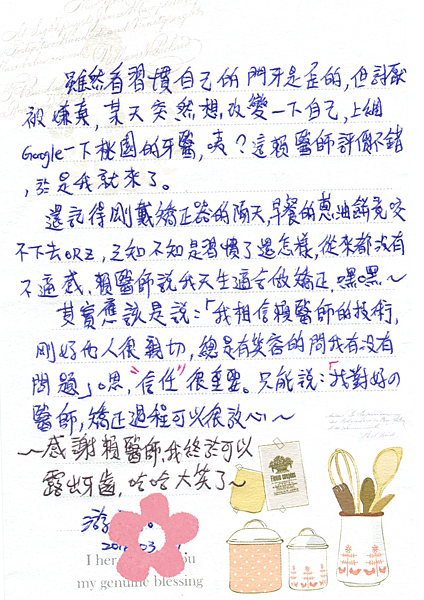 雖然看習慣自己的門牙是歪的,但討厭
被嫌棄,某天突然想改變一下自己,上網
Google一下桃園的牙醫,咦?這賴醫師評價不錯
,於是我就來了。
還記得剛戴矯正器的隔天,早餐的蔥油餅竟咬
不下去ORZ,之知不知是習慣了還怎樣,從來都沒有
不適感,賴醫師說我天生適合做矯正,嘿嘿~
其實應該是說:「我相信賴醫師的技術,
剛好他人很親切,總是有笑容的問我有沒有
問題」。恩,"信任"很重要。只能說:「找對好の
醫師,矯正過程可以很放心~
~感謝賴醫師,我終於可以
露出牙齒,哈哈大笑了~
游
I her you
my genuine blessing